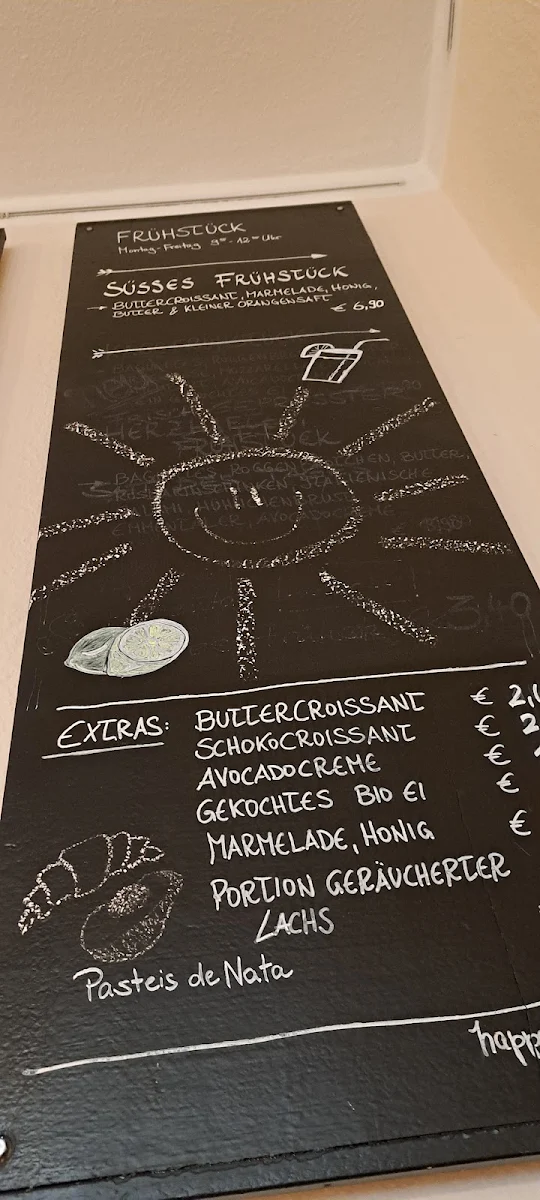 FRÜHSTÜCK
Montag-Freitag 9⁰⁰-12⁰⁰ Uhr
SÜSSES FRÜHSTÜCK
BUTTERCROISSANT, MARMELADE, HONIG,
BUTTER & KLEINER ORANGENSAFT € 6,90
HERZ
FRÜHSTÜCK
BUTTER,
3,40
EXTRAS: BUTTERCROISSANT € 2,
SCHOKOCROISSANT € 2
AVOCADOCREME €
GEKOCHTES BIO EI €
MARMELADE, HONIG €
PORTION GERÄUCHERTER
LACHS
Pasteis de Nata
happ